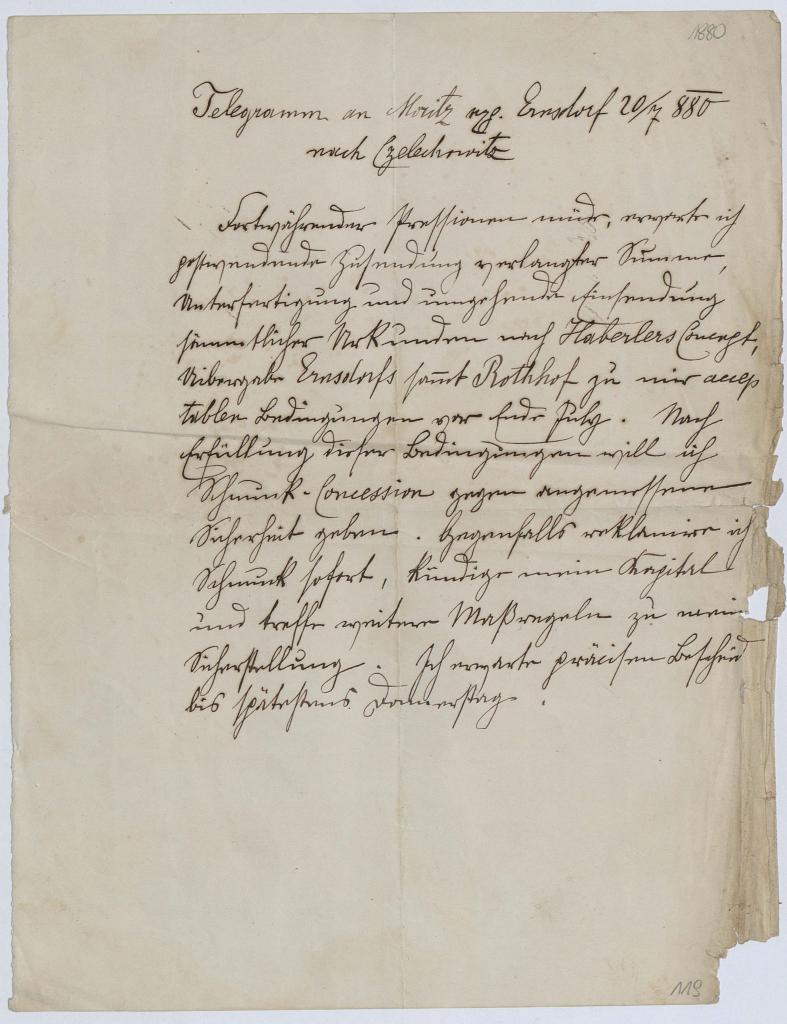 1880
Telegramm an Moritz exp. Ernsdorf 20/7 880
nach Czelechowitz
Fortwährender Pressionen müde, erwarte ich
postwendende Zusendung verlangter Summe,
Unterfertigung und umgehende Einsendung
sämmtlicher Urkunden nach Haberlers Concept,
Uibergabe Ernsdorfs sammt Rothhof zu mir accep
tablen Bedingungen vor Ende July. Nach
Erfüllung dieser Bedingungen will ich
Schmuck-Concession gegen angemessene
Sicherheit geben. Gegenfalls reklamire ich
Schmuck sofort, kündige mein Kapital
und treffe weitere Maßregeln zu mein
Sicherstellung. Ich erwarte präcisen Bescheid
bis spätestens Donnerstag.
119